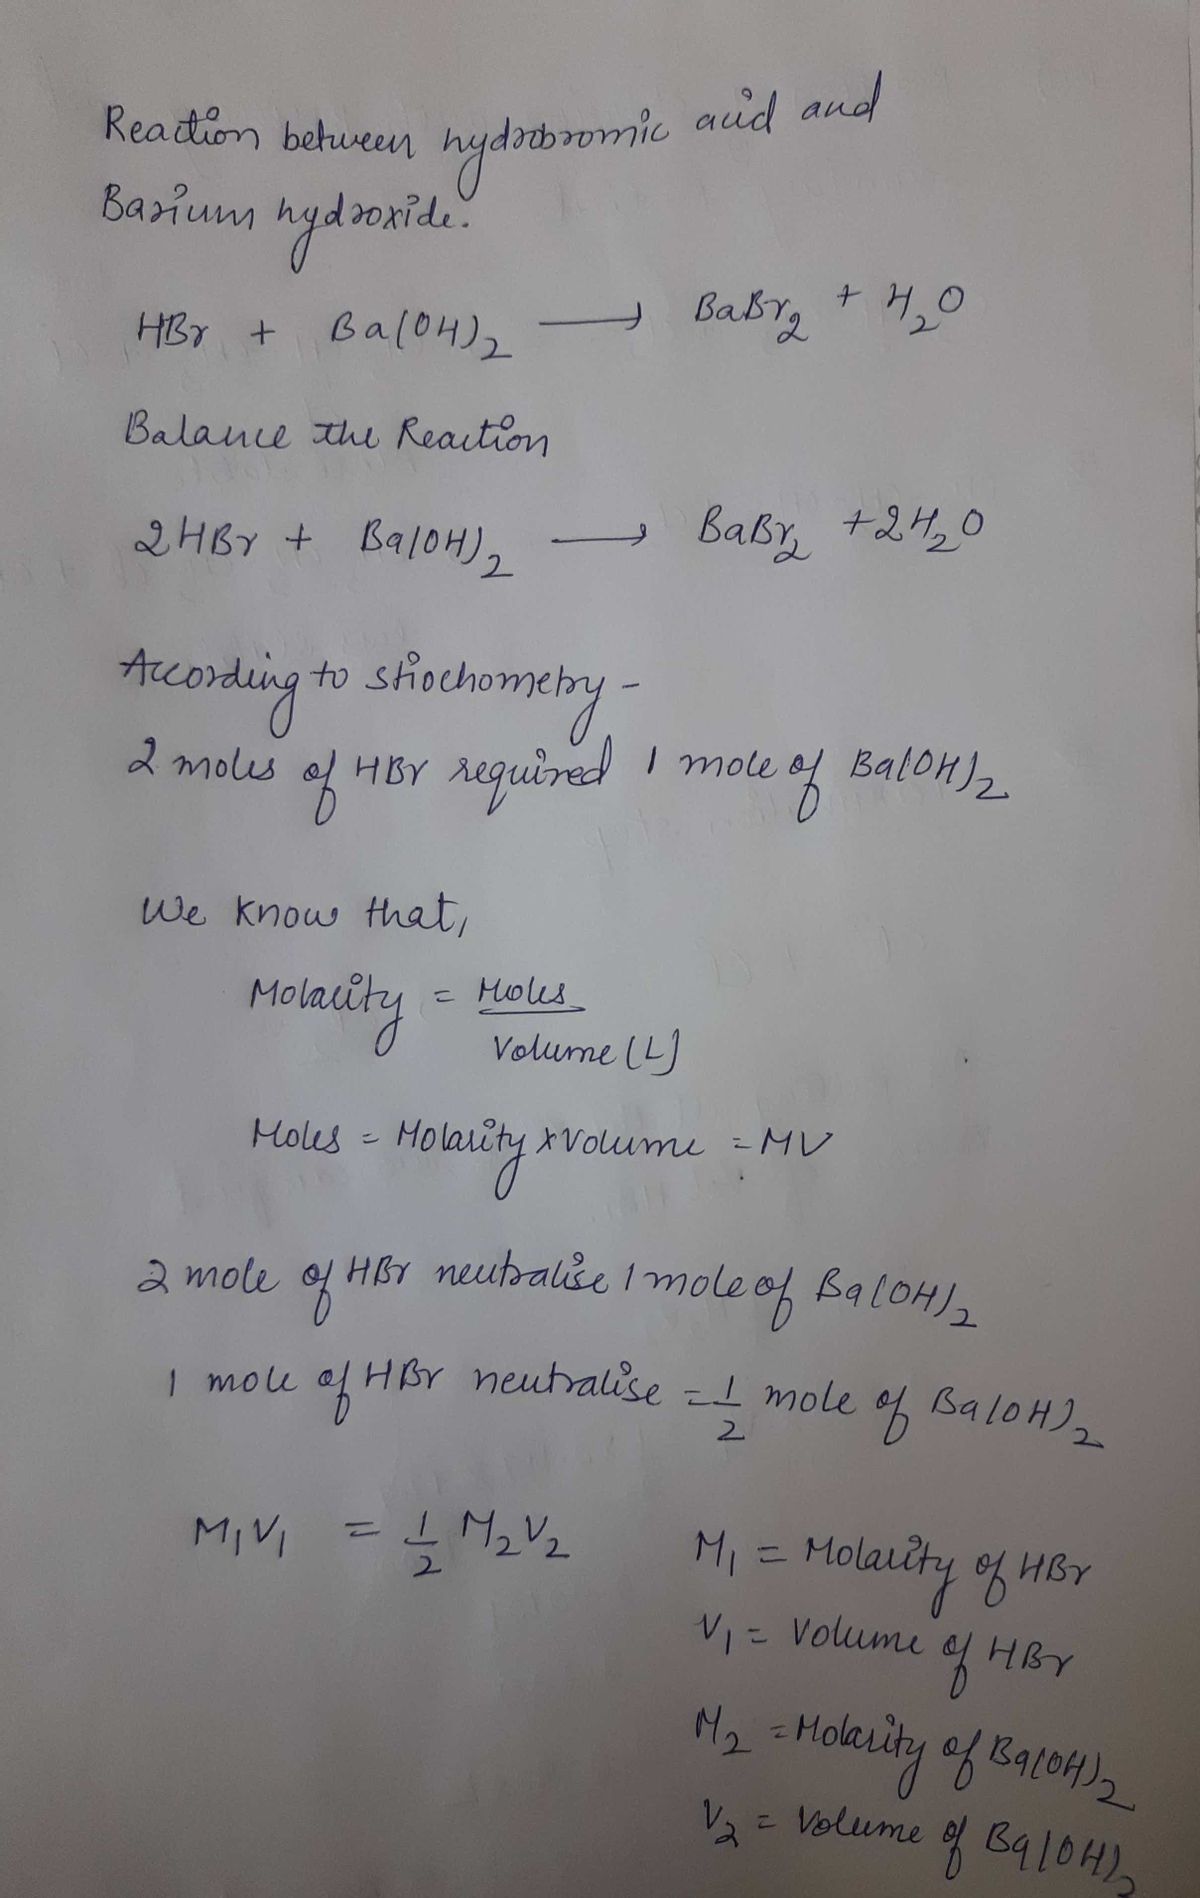 Reaction between hydrobromic acid and
Barium hydroxide.
HBr + Ba(OH)₂ ⟶ BaBr₂ + H₂O
Balance the Reaction
2HBr + Ba(OH)₂ ⟶ BaBr₂ + 2H₂O
According to stiochometry -
2 moles of HBr required 1 mole of Ba(OH)₂
We know that,
Molarity = Moles
Volume (L)
Moles = Molarity x Volume = MV
2 mole of HBr neutralise 1 mole of Ba(OH)₂
1 mole of HBr neutralise = 1/2 mole of Ba(OH)₂
M₁V₁ = 1/2 M₂V₂
M₁ = Molarity of HBr
V₁ = Volume of HBr
M₂ = Molarity of Ba(OH)₂
V₂ = Volume of Ba(OH)₂